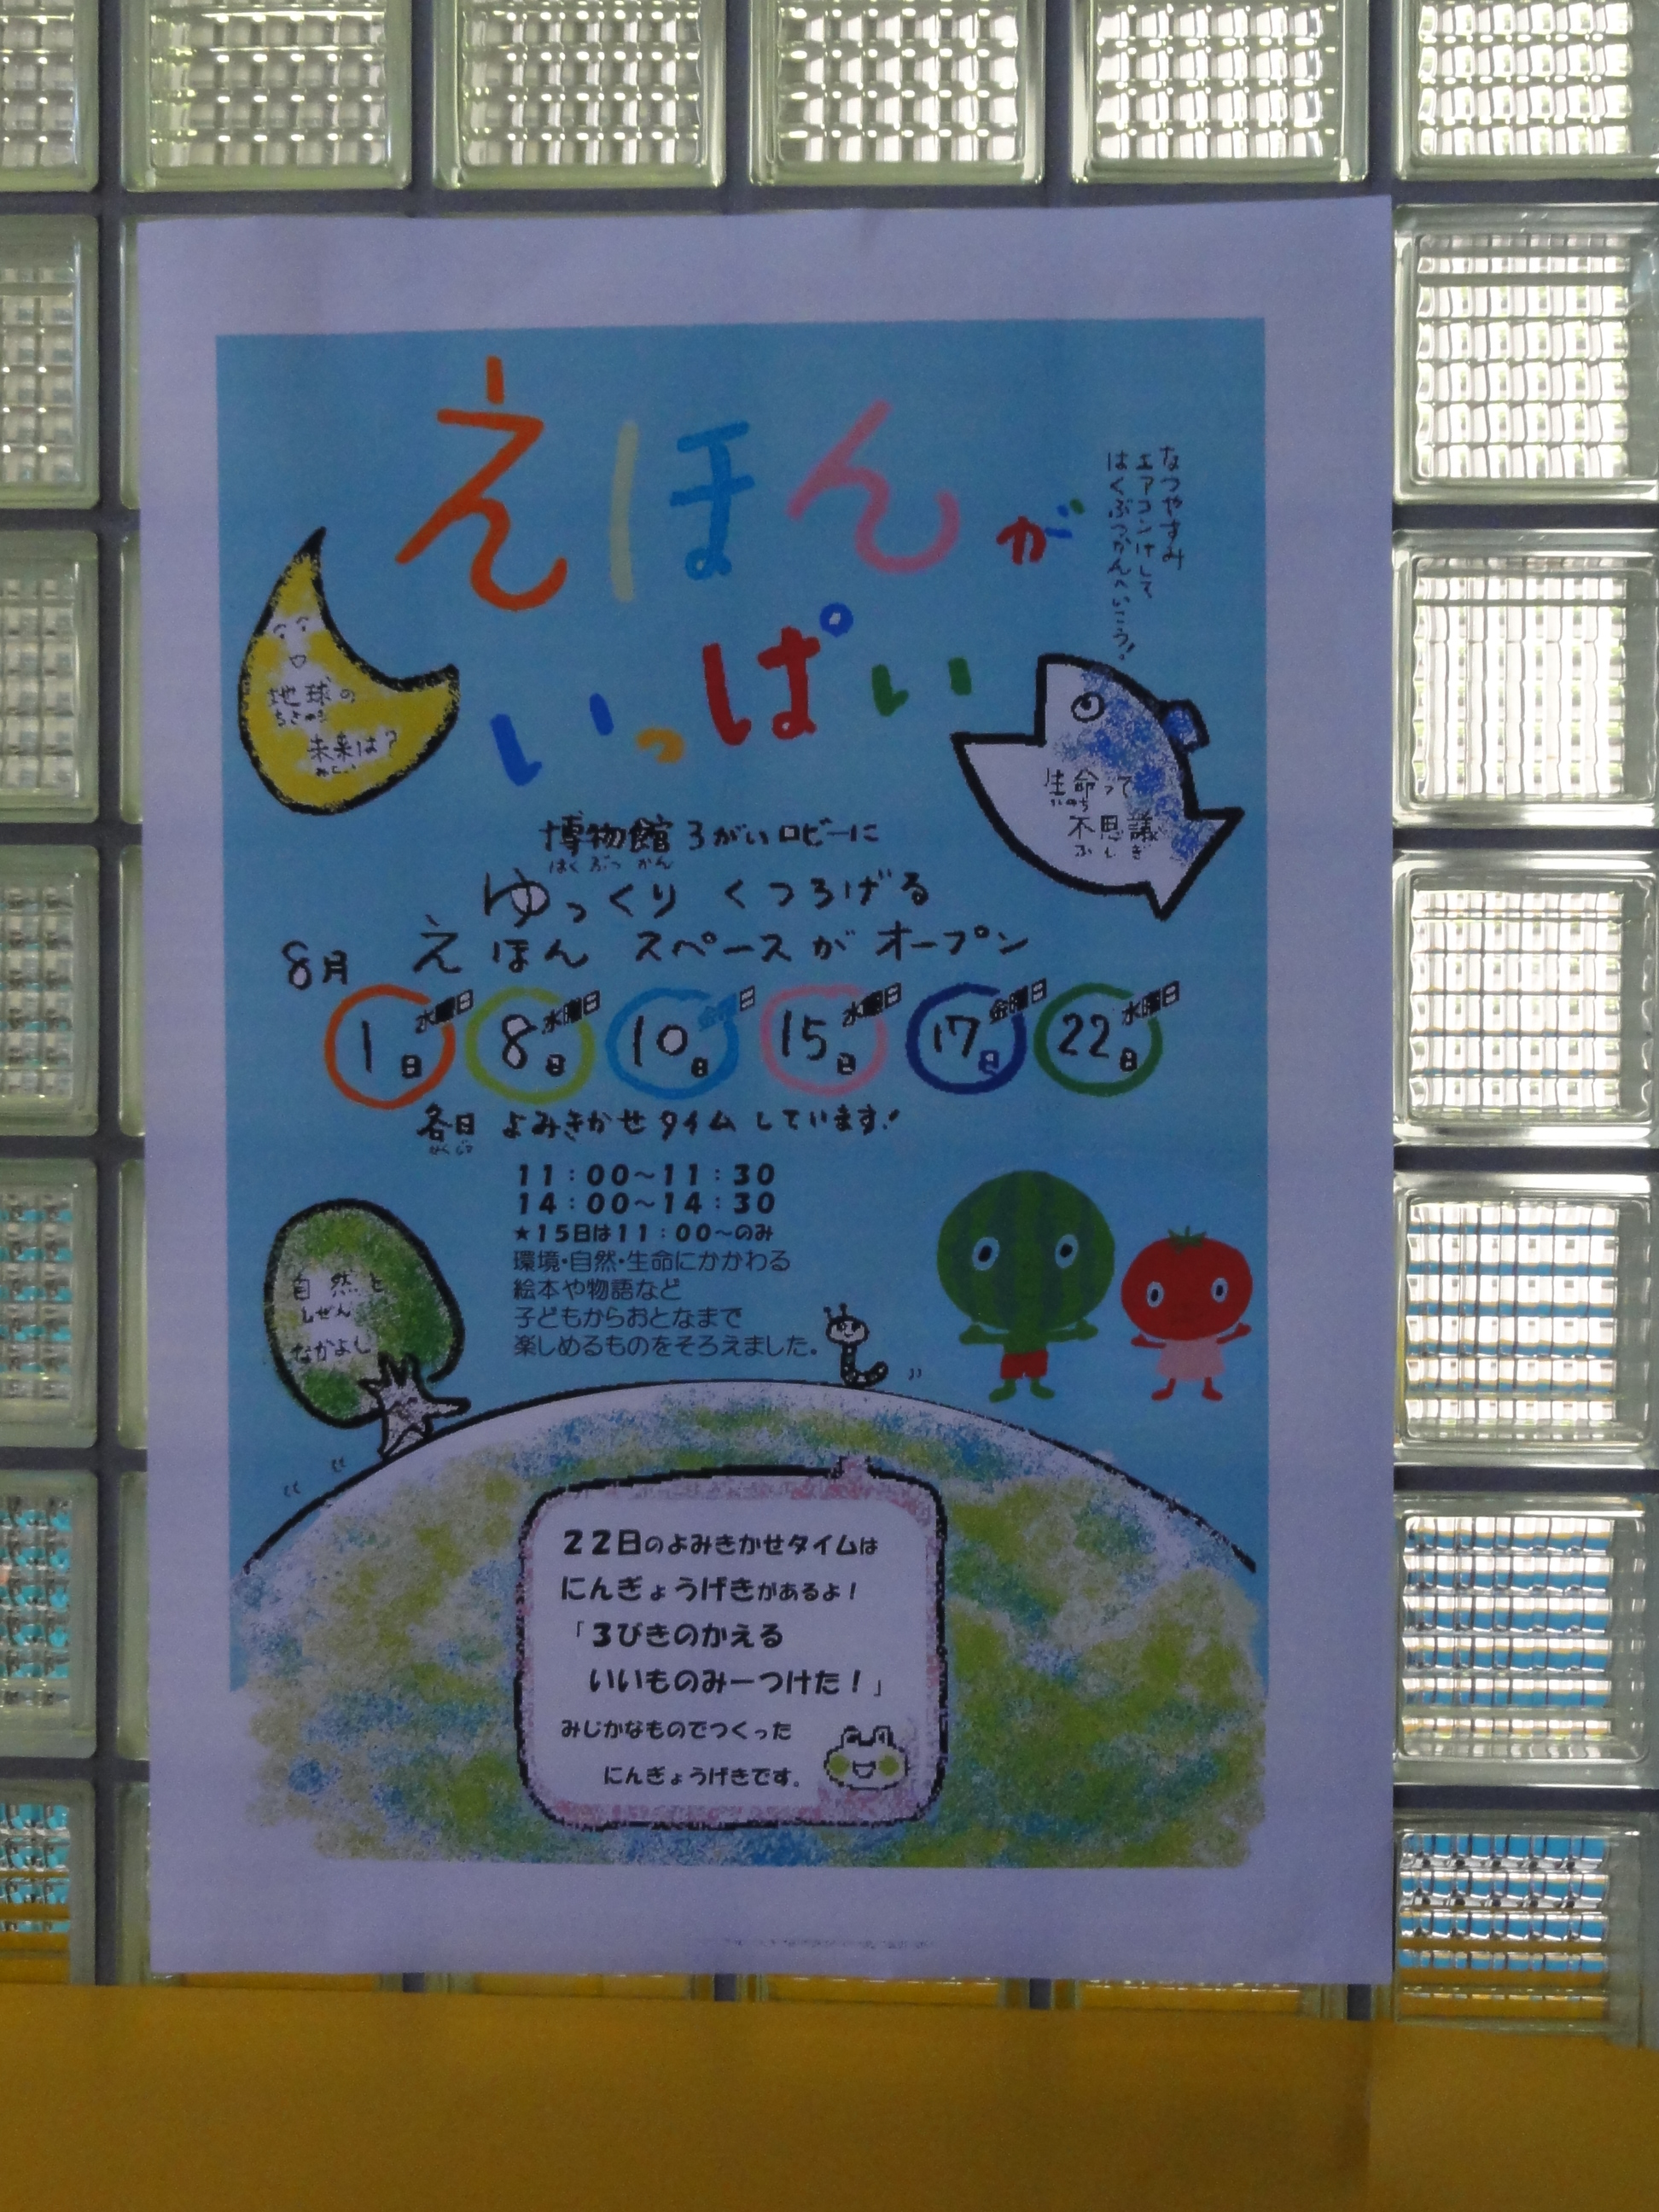 えほんが
いっぱい
なつやすみ
エアコンけして
はくぶつかんへいこう!
地球の
未来は?
みらい
生命って
いのち
不思議
ふしぎ
博物館3がいロビーに
はくぶつかん
ゆっくり くつろげる
えほん スペースが オープン
8月
1日 水曜日
8日 水曜日
10日 金曜日
15日 水曜日
17日 金曜日
22日 水曜日
各日 よみきかせタイム しています!
11:00~11:30
14:00~14:30
★15日は11:00~のみ
環境・自然・生命にかかわる
絵本や物語など
子どもからおとなまで
楽しめるものをそろえました。
自然と
しぜん
なかよし
22日のよみきかせタイムは
にんぎょうげきがあるよ!
「3びきのかえる
いいものみーつけた!」
みじかなものでつくった
にんぎょうげきです。